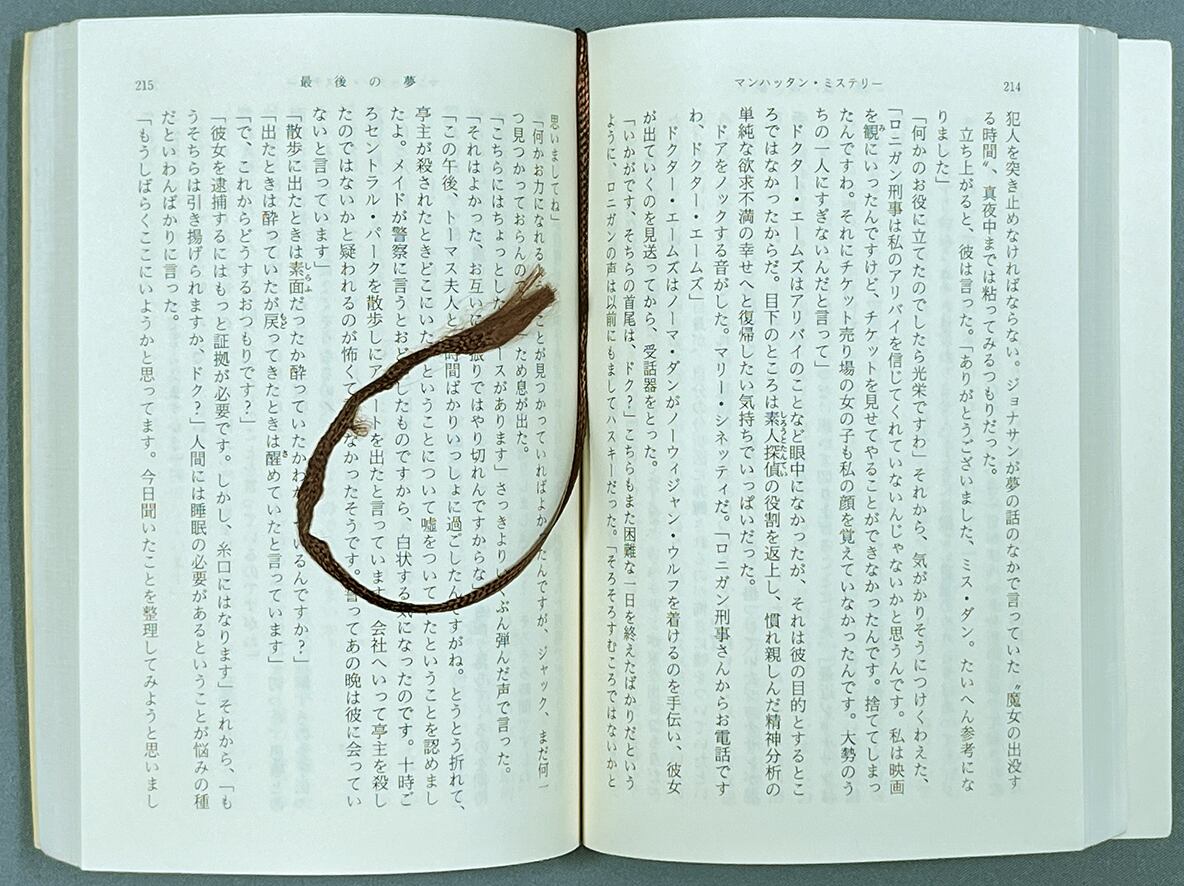 マンハッタン・ミステリー
214
犯人を突き止めなければならない。ジョナサンが夢の話のなかで言っていた〝魔女の出没す
る時間〟、真夜中までは粘ってみるつもりだった。
立ち上がると、彼は言った。「ありがとうございました、ミス・ダン。たいへん参考にな
りました」
「何かのお役に立てたのでしたら光栄ですわ」それから、気がかりそうにつけくわえた、
「ロニガン刑事は私のアリバイを信じてくれていないんじゃないかと思うんです。私は映画
を観にいったんですけど、チケットを見せてやることができなかったんです。捨ててしまっ
たんですわ。それにチケット売り場の女の子も私の顔を覚えていなかったんです。大勢のう
ちの一人にすぎないんだと言って」
ドクター・エームズはアリバイのことなど眼中になかったが、それは彼の目的とするとこ
ろではなかったからだ。目下のところは素人探偵の役割を返上し、慣れ親しんだ精神分析の
単純な欲求不満の幸せへと復帰したい気持ちでいっぱいだった。
ドアをノックする音がした。マリー・シネッティだ。「ロニガン刑事さんからお電話です
わ、ドクター・エームズ」
ドクター・エームズはノーマ・ダンがノーウィジャン・ウルフを着けるのを手伝い、彼女
が出ていくのを見送ってから、受話器をとった。
「いかがです、そちらの首尾は、ドク？」こちらもまた困難な一日を終えたばかりだという
ように、ロニガンの声は以前にもましてハスキーだった。「そろそろすむころではないかと
最後の夢
215
思いましてね」
「何かお力になれる ことが見つかっていればよか たんですが、ジャック、まだ何一
つ見つかっておらんので ため息が出た。
「こちらにはちょっとした ースがあります」さっきよりい ぶん弾んだ声で言った。
「それはよかった、お互いに 振りではやり切れんですからな
「この午後、トーマス夫人と 時間ばかりいっしょに過ごしたんですがね。とうとう折れて、
亭主が殺されたときどこにいた ということについて嘘をついていたということを認めまし
たよ。メイドが警察に言うとおど したものですから、白状する気になったのです。十時ご
ろセントラル・パークを散歩しにア ートを出たと言っています。会社へいって亭主を殺し
たのではないかと疑われるのが怖くて なかったそうです。誓ってあの晩は彼に会ってい
ないと言っています」
「散歩に出たときは素面だったか酔っていたかわか いるんですか？」
「出たときは酔っていたが戻ってきたときは醒めていたと言っています」
「で、これからどうするおつもりです？」
「彼女を逮捕するにはもっと証拠が必要です。しかし、糸口にはなります」それから、「も
うそちらは引き揚げられますか、ドク？」人間には睡眠の必要があるということが悩みの種
だといわんばかりに言った。
「もうしばらくここにいようかと思ってます。今日聞いたことを整理してみようと思いまし